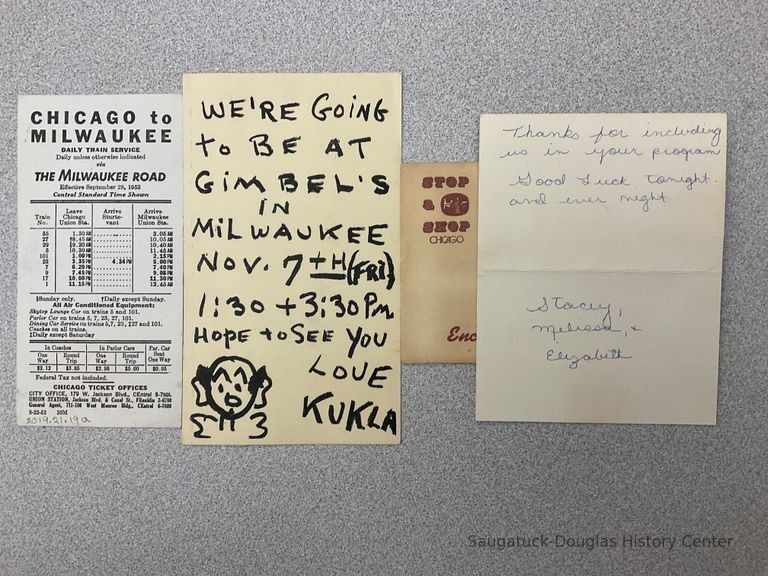 CHICAGO to
MILWAUKEE
DAILY TRAIN SERVICE
Daily unless otherwise indicated
via
THE MILWAUKEE ROAD
Effective September 28, 1952
Central Standard Time Shown
Train No. Leave Chicago Union Sta. Arrive Sturtevant Arrive Milwaukee Union Sta.
§Sunday only. †Daily except Sunday.
All Air Conditioned Equipment:
Skytop Lounge Car on trains 5 and 101.
Parlor Car on trains 5, 7, 23, 27, 101.
Dining Car Service on trains 5, 7, 23, ‡27 and 101.
Coaches on all trains.
‡Daily except Saturday
In Coaches In Parlor Cars Par. Car Seat One Way
One Way Round Trip One Way Round Trip
$2.13 $3.85 $2.98 $5.00 $0.95
Federal Tax not included.
CHICAGO TICKET OFFICES
CITY OFFICE, 179 W. Jackson Blvd., CEntral 6-7600
UNION STATION, Jackson Blvd. & Canal St., FRanklin 2-6700
General Agent, 711-100 West Monroe Bldg., CEntral 6-7600
9-22-52 30M
2019.21.19a
WE'RE GOING
to BE AT
GIMBEL'S
IN
MILWAUKEE
NOV. 7TH (FRI)
1:30 + 3:30 PM
HOPE to SEE YOU
LOVE
KUKLA
STOP
&
SHOP
CHICAGO
Enc
Thanks for including
us in your program
Good Luck tonight.
and ever night
Stacey,
Melissa, +
Elizabeth
Saugatuck-Douglas History Center